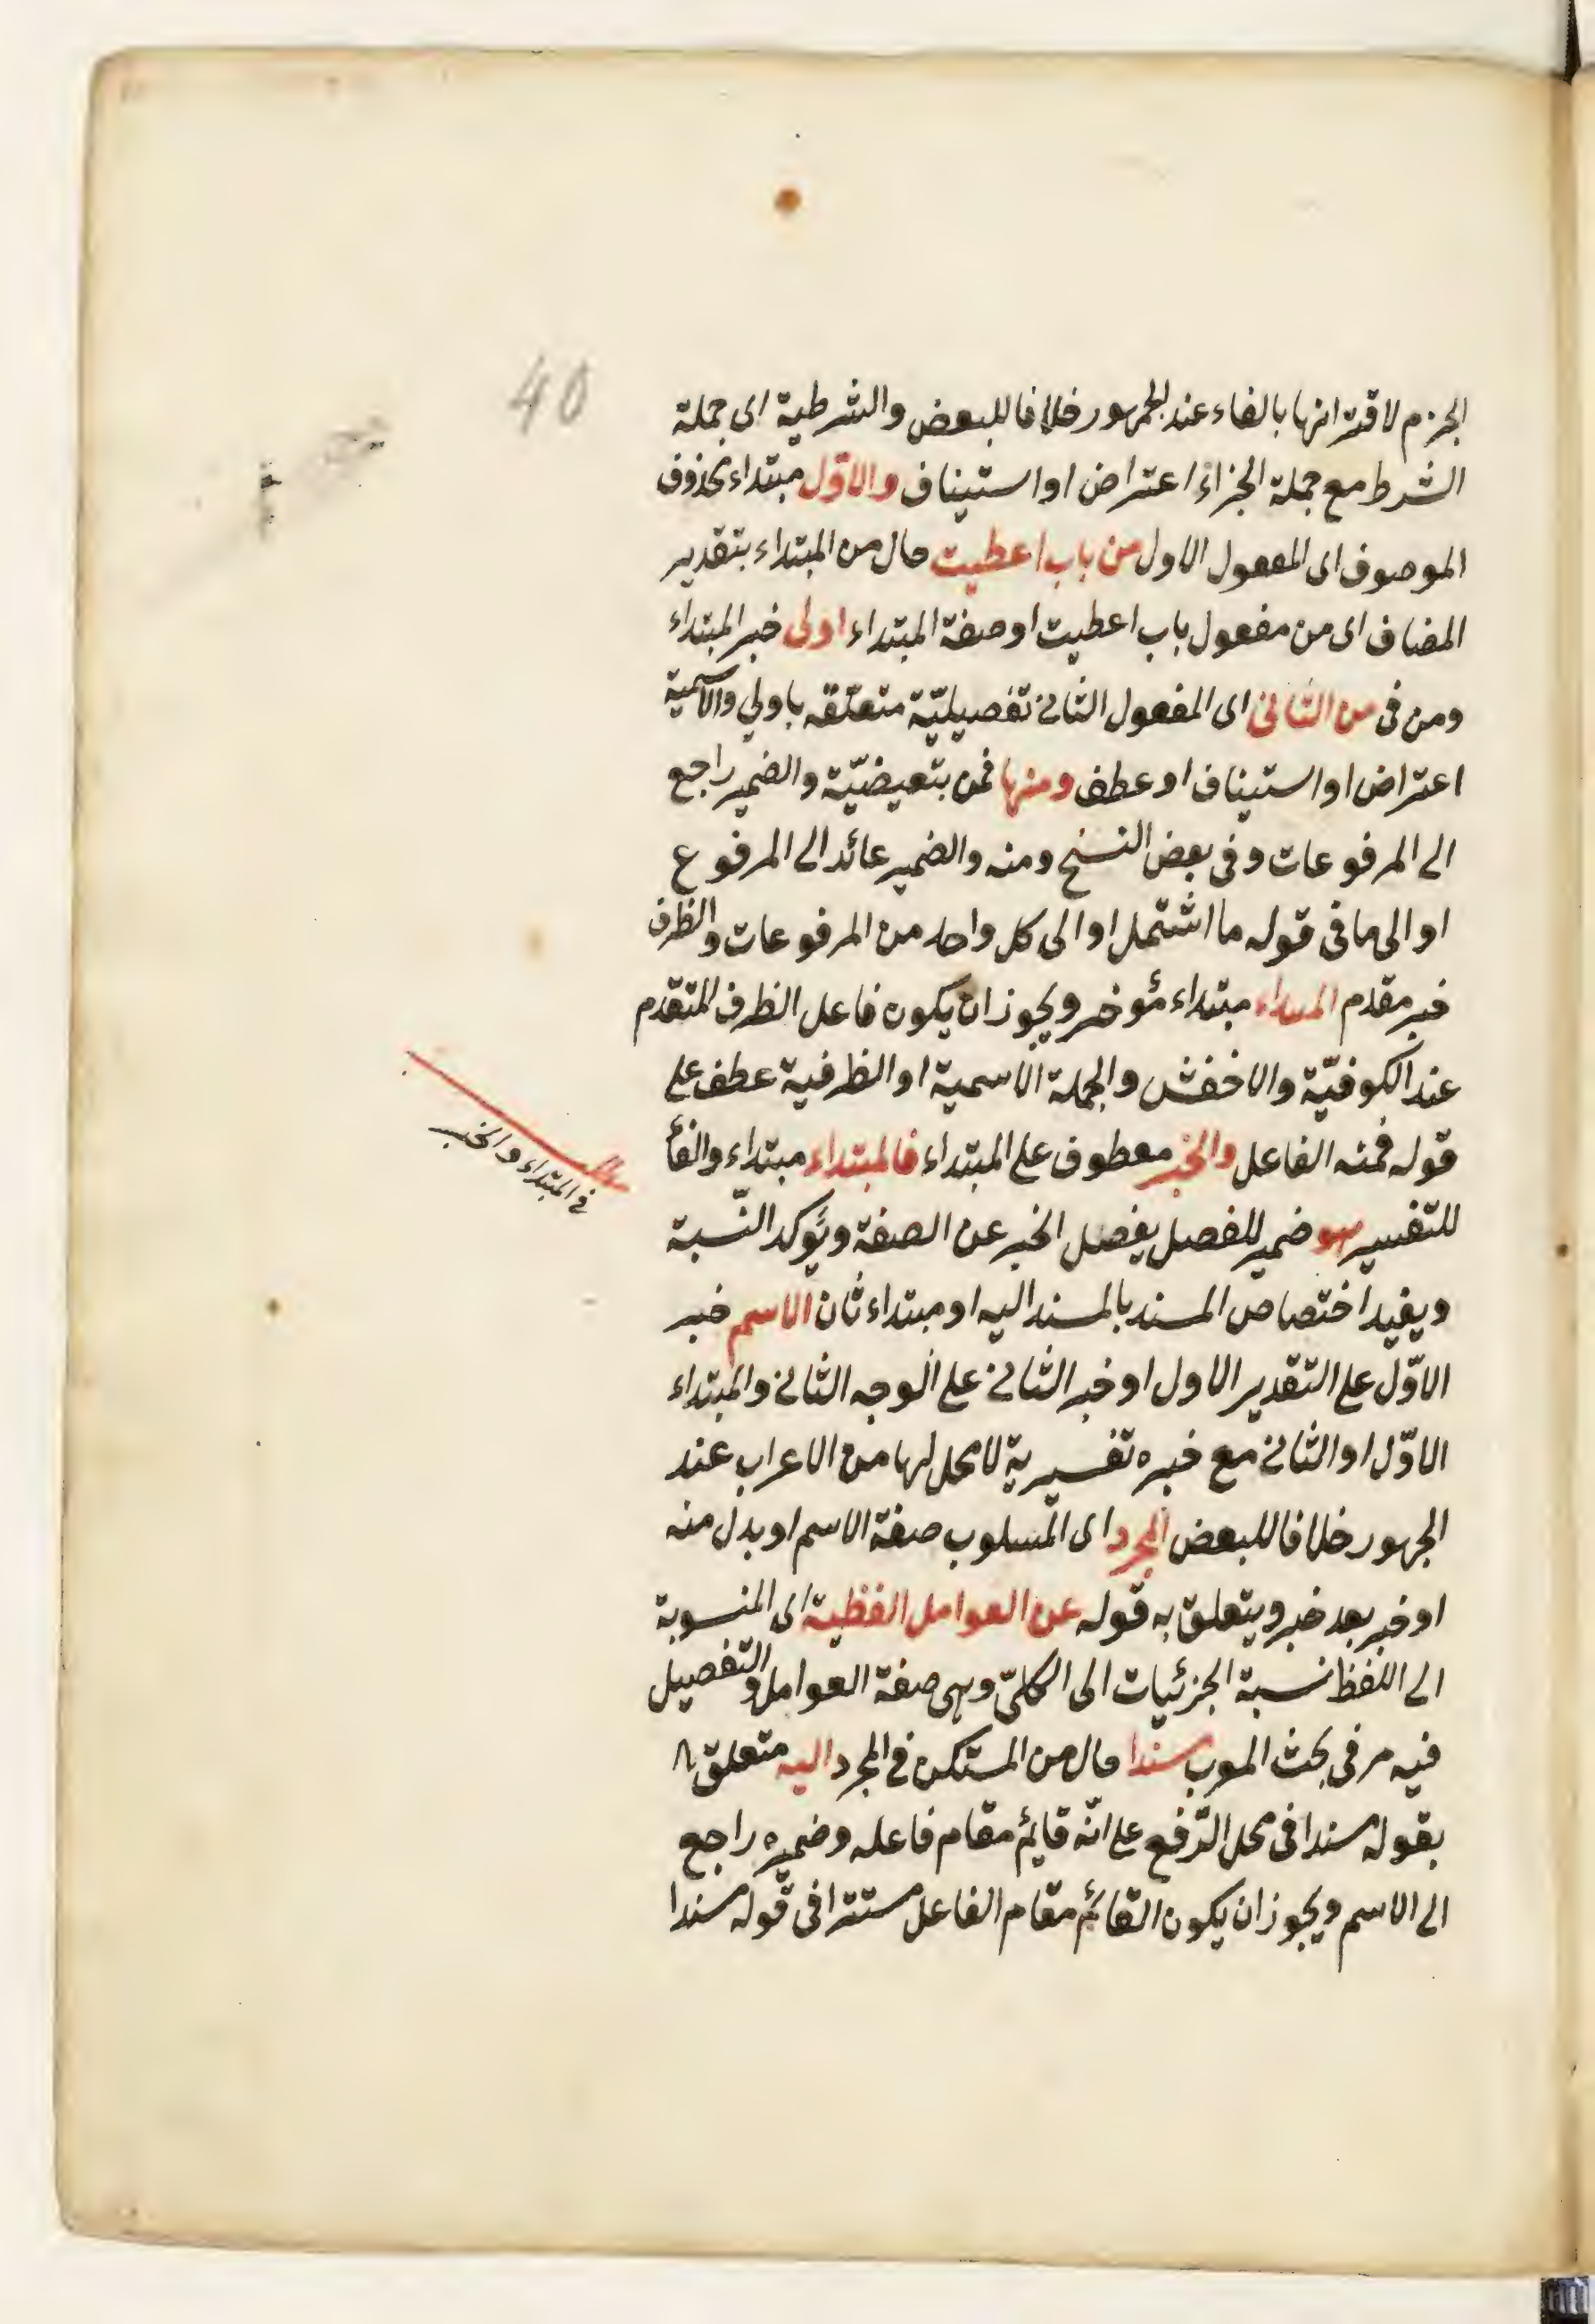 40
الجزم لاقترانها بالفاء عند الجمهور خلافا للبعض والشرطية اى جملة
الشرط مع جملة الجزاء اعتراض او استيناف والاوّل مبتداء محذوف
الموصوف اى المفعول الاول من باب اعطيت حال من المبتداء بتقدير
المضاف اى من مفعول باب اعطيت او صفة المبتداء اولى خبر المبتداء
ومن فى من الثانى اى المفعول الثانى تفصيليّة متعلّقه باولي والاسمية
اعتراض او استيناف او عطف ومنها فمن بتعيضيّة والضمير راجع
الى المرفوعات وفى بعض النسخ ومنه والضمير عائد الى المرفوع
او الى ما فى قوله ما اشتمل او الى كل واحد من المرفوعات والظرف
خبر مقدم المبتداء مبتداء مؤخر ويجوز ان يكون فاعل الظرف المتقدم
عند الكوفيّة والاخفش والجملة الاسمية او الظرفية عطف على
قوله فمنه الفاعل والخبر معطوف على المبتداء فالمبتداء مبتداء والفاء
فى المبتداء والخبر
للتفسير هو ضمير للفصل يفصل الخبر عن الصفة ويؤكد النّسبة
ويفيد اختصاص المسند بالمسند اليه او مبتداء ثان الاسم خبر
الاوّل على التقدير الاول او خبر الثانى على الوجه الثانى والمبتداء
الاوّل او الثانى مع خبره تفسيرية لا محل لها من الاعراب عند
الجمهور خلافا للبعض المجرد اى المسلوب صفة الاسم او بدل منه
او خبر بعد خبر ويتعلق به قوله عن العوامل الفظية اى المنسوبة
الى اللفظ نسبة الجزئيات الى الكلىّ وهى صفة العوامل والتفصيل
فيه مر فى بحث المعرب مسندا حال من المستكن فى المجرد اليه متعلق
بقوله مسندا فى محل الرّفع على انّه قايم مقام فاعله وضميره راجع
الى الاسم ويجوز ان يكون القائم مقام الفاعل مستترا فى قوله مسندا